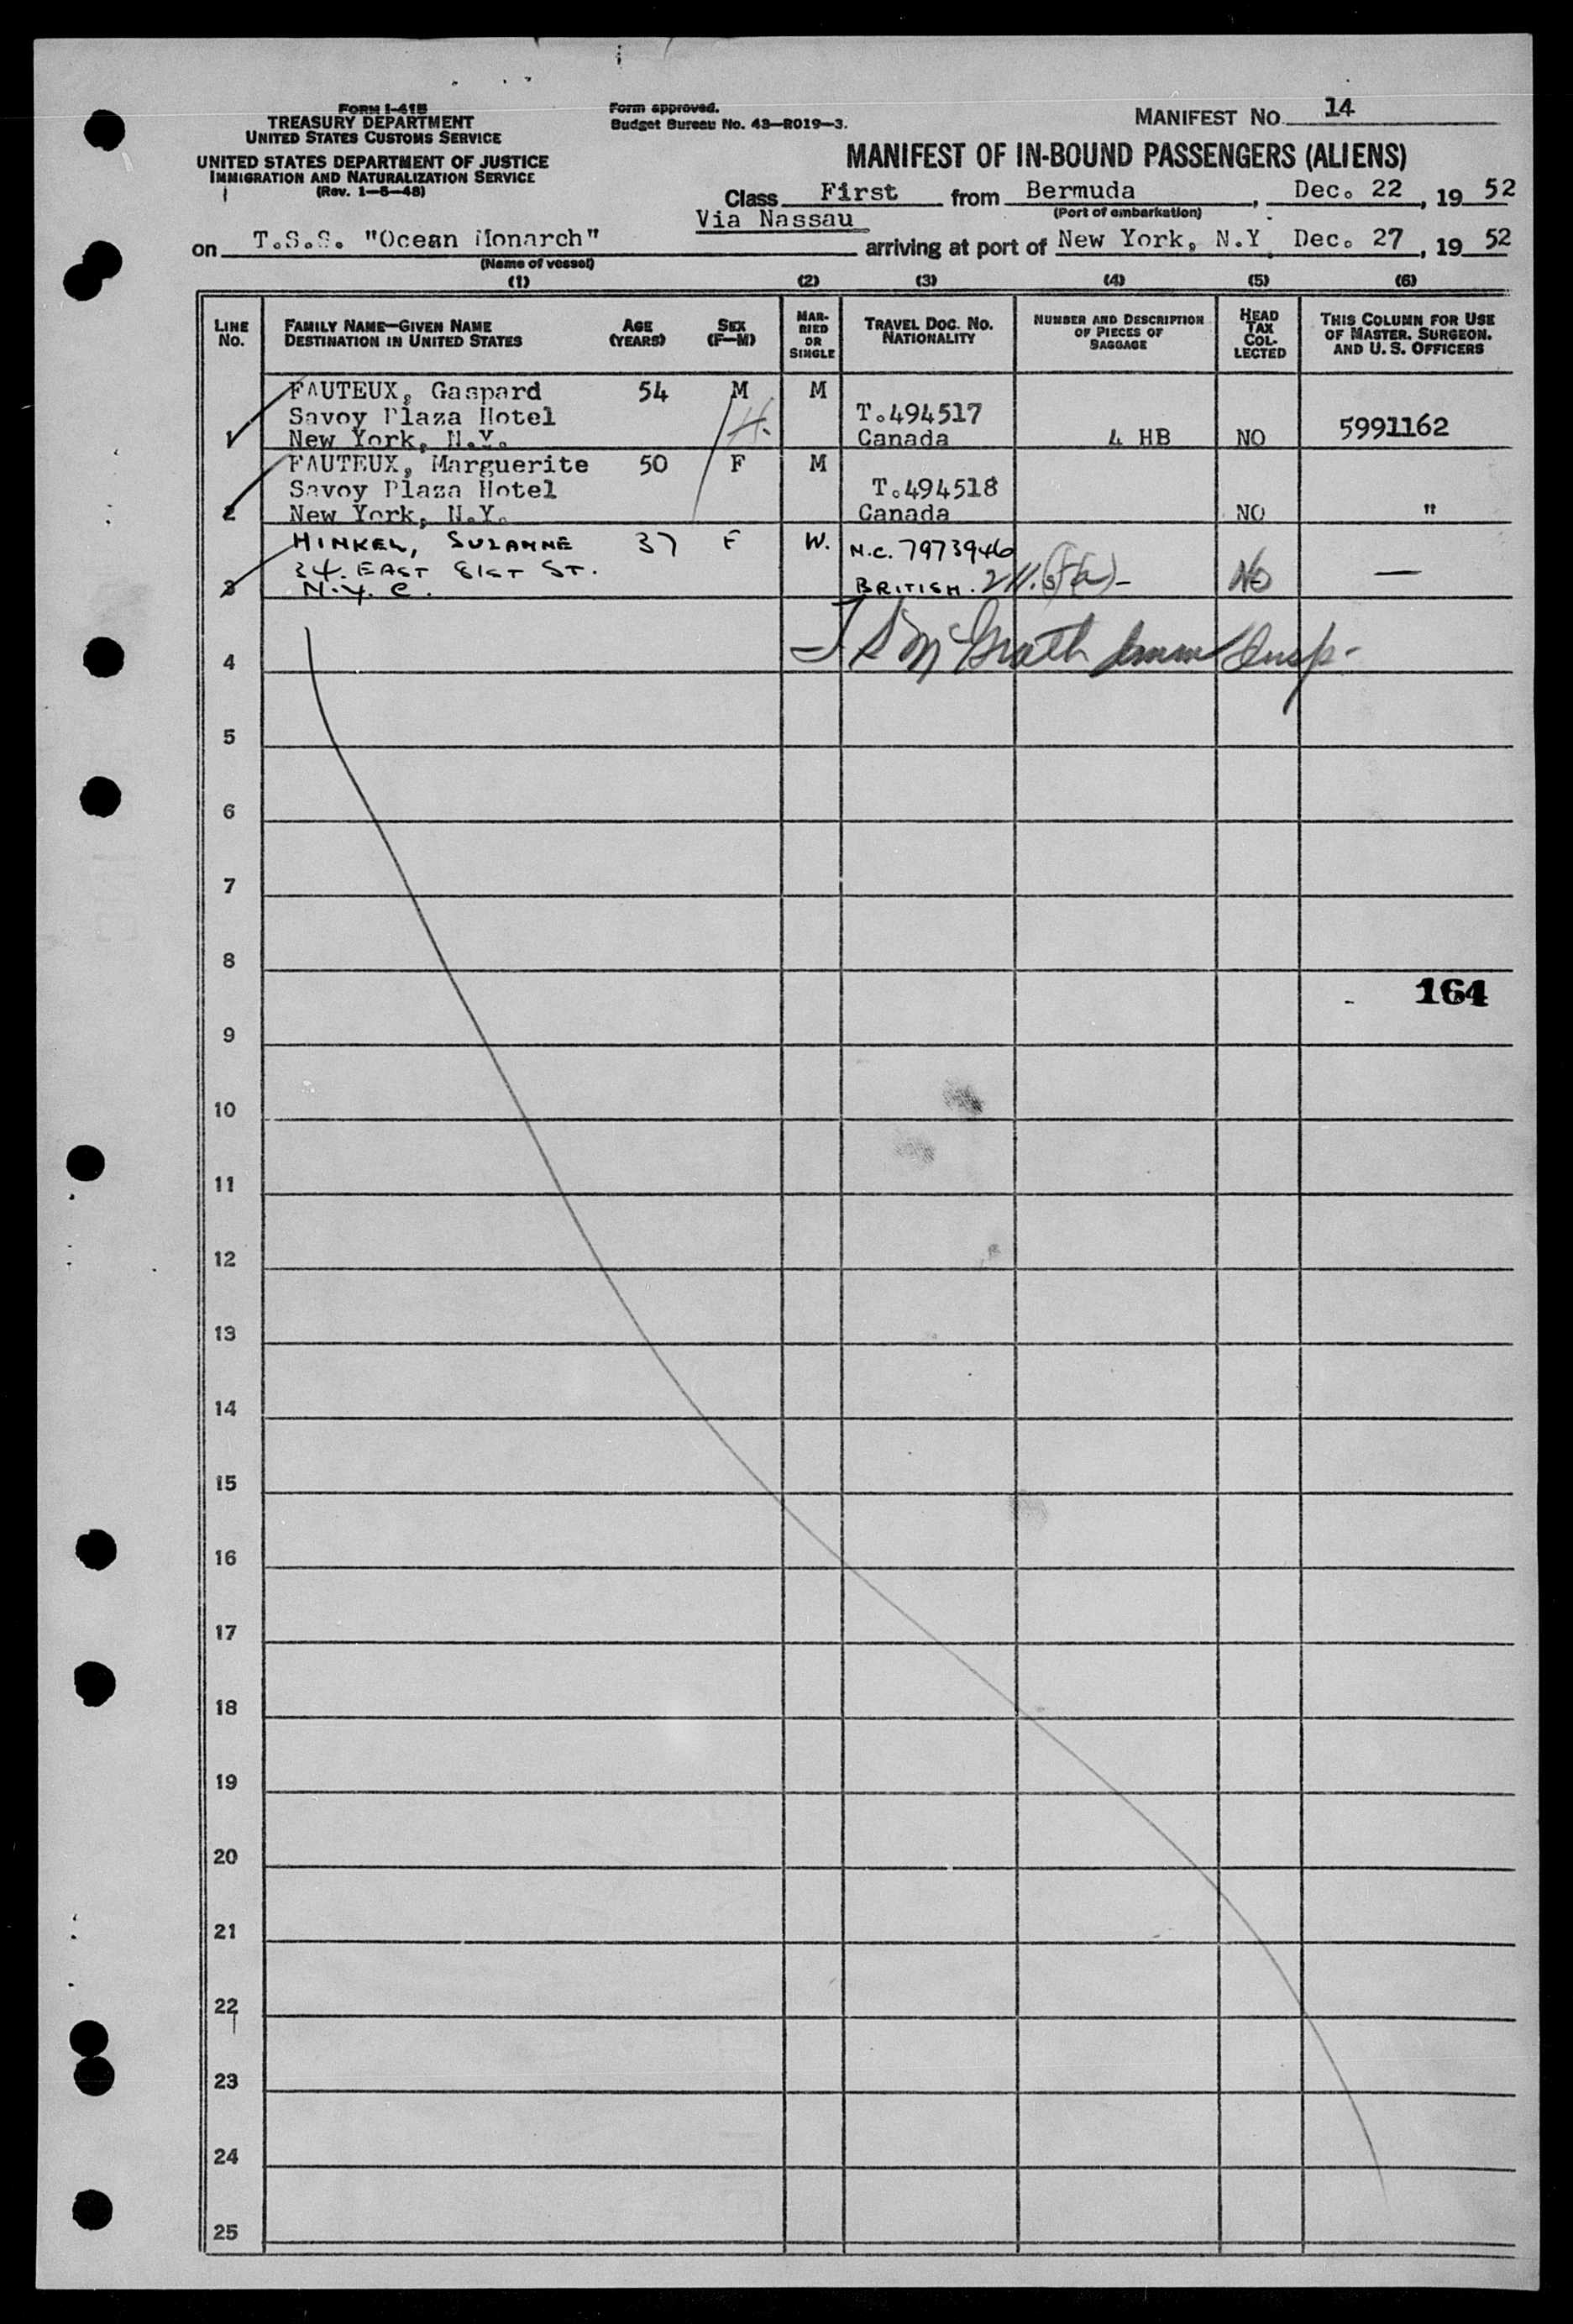 FORM I-415
TREASURY DEPARTMENT
UNITED STATES CUSTOMS SERVICE
UNITED STATES DEPARTMENT OF JUSTICE
IMMIGRATION AND NATURALIZATION SERVICE
(Rev. 1—5—48)
Form approved.
Budget Bureau No. 43—R019—3.
MANIFEST NO. 14
MANIFEST OF IN-BOUND PASSENGERS (ALIENS)
Class First from Bermuda, Dec. 22, 1952
Via Nassau (Port of embarkation)
on T.S.S. "Ocean Monarch" arriving at port of New York, N.Y. Dec. 27, 1952
(Name of vessel)
(1) (2) (3) (4) (5) (6)
LINE NO. FAMILY NAME—GIVEN NAME DESTINATION IN UNITED STATES AGE (YEARS) SEX (F—M) MARRIED OR SINGLE TRAVEL DOC. NO. NATIONALITY NUMBER AND DESCRIPTION OF PIECES OF BAGGAGE HEAD TAX COLLECTED THIS COLUMN FOR USE OF MASTER, SURGEON, AND U. S. OFFICERS
FAUTEUX, Gaspard 54 M M
Savoy Plaza Hotel T.494517
1 New York, N.Y. Canada 4 HB NO 5991162
FAUTEUX, Marguerite 50 F M
Savoy Plaza Hotel T.494518
2 New York, N.Y. Canada NO "
HINKEL, SUZANNE 37 F W. N.C. 7973946
34. EAST 81ST ST.
3 N.Y.C. BRITISH. No —
4 McGrath Imm Insp-
5
6
7
8
164
9
10
11
12
13
14
15
16
17
18
19
20
21
22
23
24
25